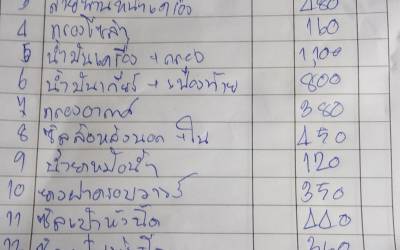 3 สายพานหน้าเครื่อง 480
4 กรองโซล่า 160
5 น้ำมันเครื่อง + กรอง 1,100
6 น้ำมันเกียร์ + เฟืองท้าย 800
7 กรองอากาศ 380
8 ซีลล้อหลังนอก ใน 450
9 น้ำยาหม้อน้ำ 120
10 ยางฝาครอบวาวล์ 350
11 ซีลเบ้าหัวฉีด 440
12